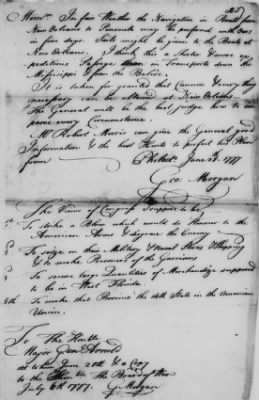 Memo. In fair Weather the Navigation in Boats from
New Orleans to Pensacola may be performed with Oars
in five days. Sails might be given to the Boats at
New Orleans. I think this a shorter & more ex-
peditious Passage than in Transports down the
Mississippi & from the Belize.
It is taken for granted that Cannon & every thing
necessary can be obtained at New Orleans.
The General will be the best judge how to im-
prove every Circumstance.
Mr. Robert Morris can give the General good
Information & the best Hints to perfect his Plan
from
June 1777
Geo. Morgan
The Views of Congress I suppose to be
To strike a Blow which would do Honour to the
American Arms & disgrace the Enemy
To seize on their Military & Naval Stores & Shipping
& to make Prisoners of the Garrisons
To secure large Quantities of Merchandize supposed
to be in West Florida
To make that Province the 14th State in the American
Union.
To The Honble
Major Gen. Arnold
June 20th & a Copy
to the The Board of War
July 6th 1777. G. Morgan